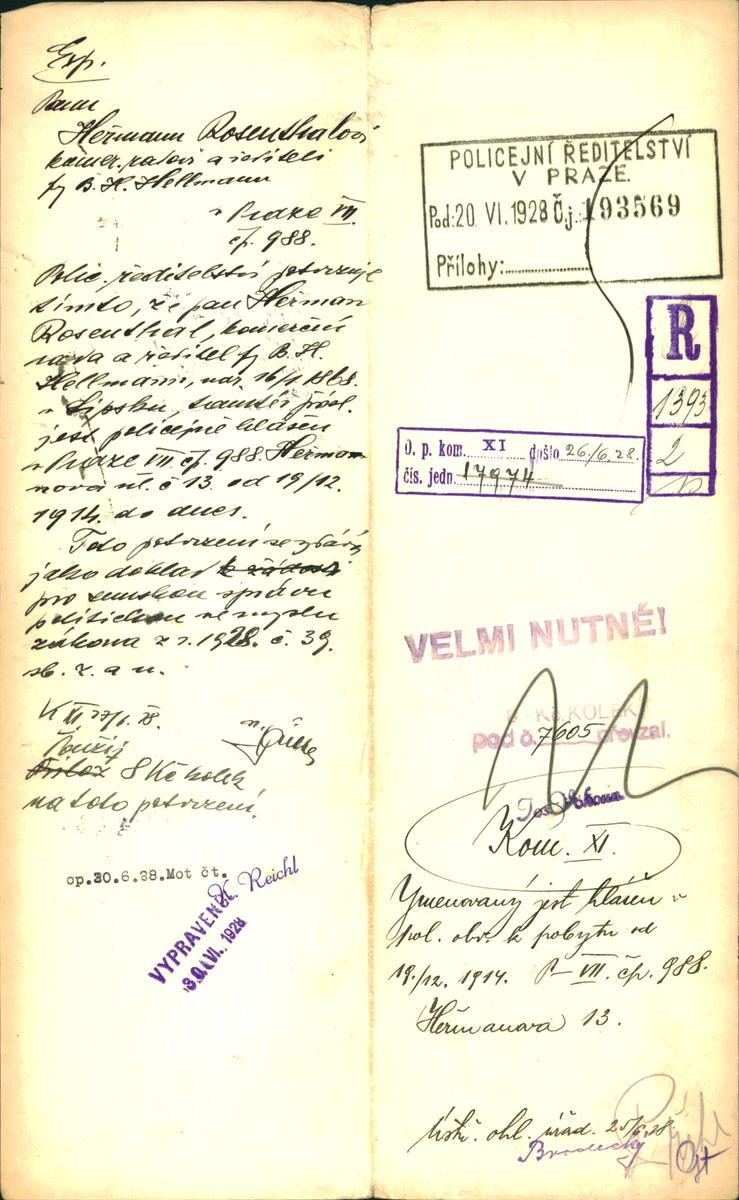 Exp.
Panu
Heřmann Rosenthalovi
komer. radovi a řediteli
fy B. H. Hellmann
v Praze VII
čp. 988.
Polic. ředitelství potvrzuje
tímto, že pan Heřman
Rosenthal, komerční
rada a ředitel fy B. H.
Hellmann, nar. 16/1 1868.
v Lipsku, tamtéž přísl.
jest policejně hlášen
v Praze VII čp. 988. Heřma-
nova ul. č 13. od 19/12.
1914. do dnes.
Toto potvrzení se vydává
jako doklad k žádosti
pro zemskou správu
politickou ve smyslu
zákona z r. 1928. č. 39.
sb. z. a n.
K XI 27/6. 28.
8 Kč kolek
na toto potvrzení.
op.30.6.28.Mot čt.
Reichl
VYPRAVENO
30. VI. 1928
POLICEJNÍ ŘEDITELSTVÍ
V PRAZE.
Pod: 20 VI. 1928 Č.j. 193569
Přílohy:
R
1393
2
O. p. kom. XI došlo 26./6.28.
čís. jedn. 17974
VELMI NUTNÉ!
Kč KOLEK
pod č. 7605 převzal.
Kom. XI.
Jmenovaný jest hlášen v
pol. obv. k pobytu od
19./12. 1914. P-VII. čp. 988.
Heřmanova 13.
Ústř. ohl. úřad. 25/6 28.
Brodecký